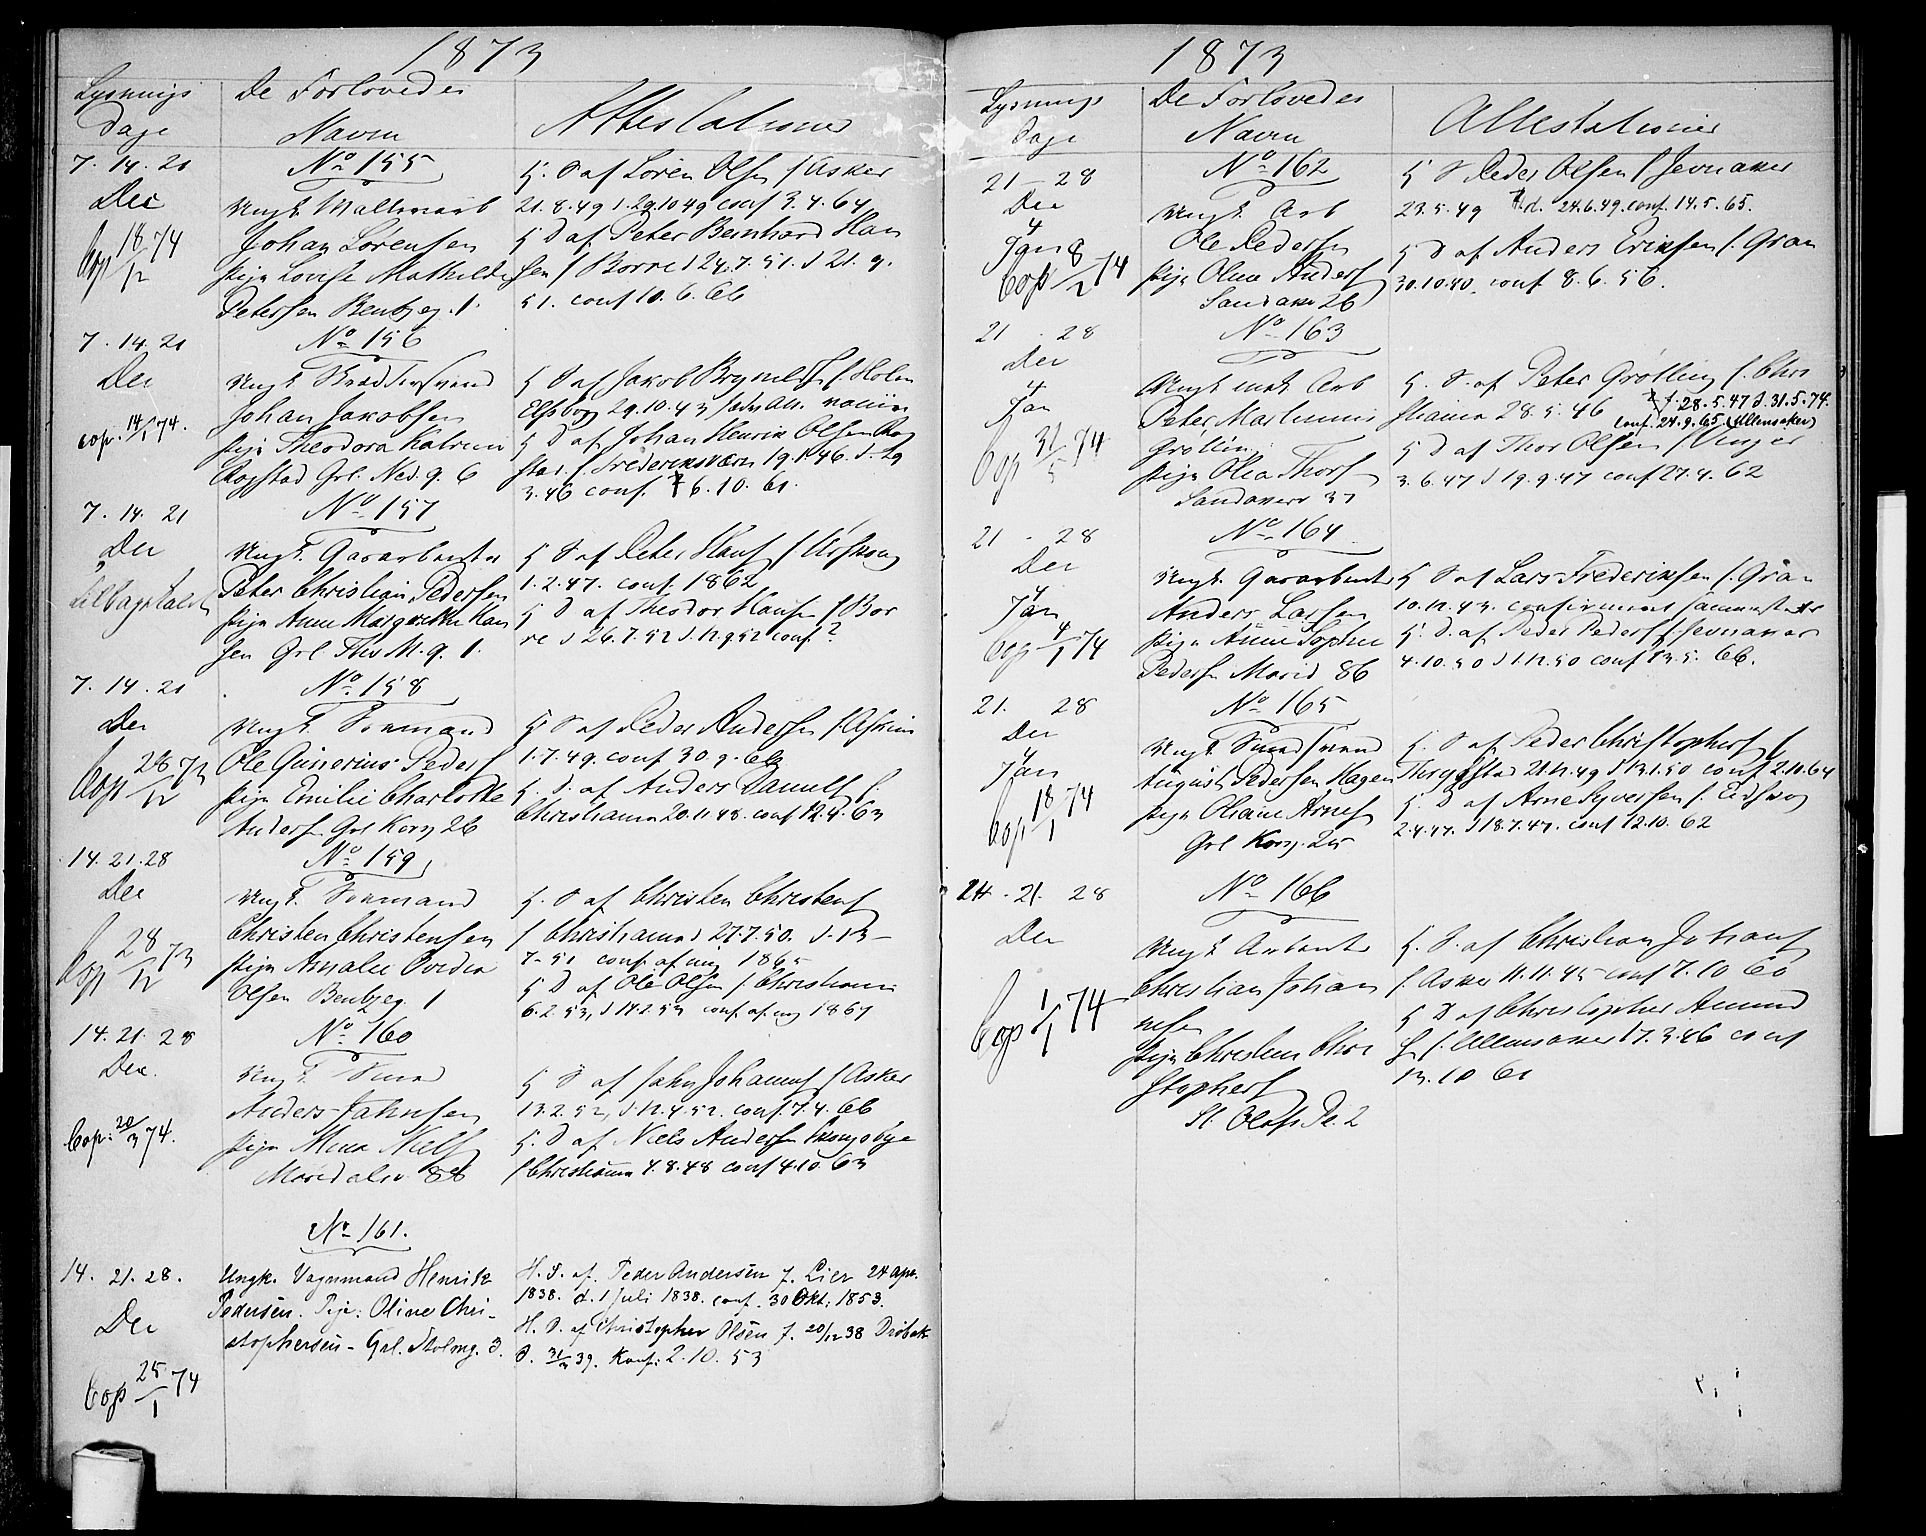 1873
Lysnings Dage
De Forlovedes Navn
Attestationer
7. 14. 21 Dec
Cop 18/1 74
No 155
Ungk.
Johan Lørensen
Pige Lovise Mathilde
Petersen Benbjeg. 1.
H. S af Lören Olsen f Asker
21. 8. 49 conf 3. 4. 64
H D af Peter Bernhard Han
sen f Borre
51. conf 10. 6. 66
7. 14. 21
Dec
cop. 14/1 74.
No 156
Ungk.
Johan Jakobsen
Pige Theodora Katrine
Rogstad Grl. Ned. g. 6
H S af Jakob f Holm
Elfsborg 29. 10. 43
H D af Johan Henrik Olsen Rog
stad f. Frederiksværn
3. 46 conf. 6. 10. 61.
7. 14. 21
Dec
Tilbagekaldt
No 157
Ungk. Garvarbeider
Peter Christian Pedersen
Pige Anne Margrethe Han
sen Grl. Thv M. g. 1.
H S af Peter Hans f
1. 2. 47. conf. 1862
H D af Theodor Hansen f Bor
re d 26. 7. 52 conf?
7. 14. 21
Dec
Cop 28/12 73
No 158
Ungk. Sømand
Ole Gunerius Peders
Pige Emilie Charlotte
Anders. Grl Korg 26
H S af Peder Andersen f Askim
1. 7. 49. conf 30. 9.
H. D. af Anders Daniels f.
Christiania 20. 11. 48. conf 12. 4. 63
14. 21. 28
Dec
Cop 28/12 73
No 159
Ungk. Sømand
Christen Christensen
Pige Amalie
Olsen Benbjeg. 1
H. S af Christen Christens
f Christiania 27. 7. 50.
conf af mig 1865
H D af Ole Olsen f Christiania
6. 2. 53, conf. af mig 1867
14. 21. 28
Dec.
Cop: 20/3 74.
No 160
Ungk. Smed
Anders Jahnsen
Pige Mina Niels
Maridalsv. 88
H S af Jahn Johannes f Asker
13. 2. 52, d. 12. 4. 52. conf. 7. 4. 66
H. D af Niels Andersen
f Christiania 7. 8. 48 conf 4. 10. 63
No 161.
14. 21. 28.
Dec
Cop 25/1 74
Ungk. Vognmand Henrik
Pedersen. Pige: Oline Chri-
stophersen - Grl. Stolmg. 3.
H. S. af. Peder Andersen f. Lier 24 apr.
1838. d. 1 Juli 1838. conf. 30 Okt: 1853.
H. D. af Christopher Olsen f. 20/12 38 Drøbak
d. 31/3 39. Konf: 2. 10. 53
1873
Lysnings Dage
De Forlovedes Navn
Attestationer
21 - 28
Dec
4 Jan
Cop 8/2 74
No 162
Ungk. Arb
Ole Pedersen
Pige Oline Anders
Sandaker 26
H S Peder Olsen f Jevnaker
23. 5. 49 d. 24. 6. 49. conf. 14. 5. 65.
H D af Anders Eriksen f. Gran
30. 10. 40. conf 8. 6. 56.
21 - 28
Dec
4 Jan
Cop 31/5 74
No 163
Ungk Arb
Peter Martinius
Grøtting
Pige Olea Thors
Sandaker 37
H. S. af Peter Grøtting f. Chri
stiania 28. 5. 46
f. 28. 5. 47 d. 31. 5. 74.
conf. 24. 9. 65 (Ullensaker)
H D af Thor Olsen f Vinger
3. 6. 47 d 19. 9. 47 conf 27. 4. 62
21 - 28
Dec
4 Jan
Cop 4/1 74
No 164.
Ungk. Garvarbeider
Anders Larsen
Pige Anne Sophie
Peders. Marid 86
H S af Lars Frederiksen f. Gran
10. 12. 43. confirmeret sammesteds
H. D. af Peder Peders f. Jevnaker
4. 10. 50 d 1. 12. 50 conf 13. 5. 66.
21. 28
Dec
4 Jan
Cop 18/1 74
No 165
Ungk. Smedsvend
August Pedersen Hagen
Pige Oliane Arnes
Grl Korg. 25
H. S af Peder Christophers f
Thrygstad 21. 12. 49 d 13. 1. 50 conf 2. 10. 64
H. D af Arne Syversen f. Eidskog
2. 4. 47. d 18. 7. 47. conf 12. 10. 62
14. 21. 28
Dec
Cop 1/1 74
No 166
Ungk Arbeider
Christian Johan
nesen
Pige Christine Chri
stophers
St. Olafs Pl. 2
H. S. af Christian Johans
f. Asker 11. 11. 45 conf 7. 10 60
H D af Christopher Amund
s f. Ullensaker 17. 3. 46 conf
13. 10 61